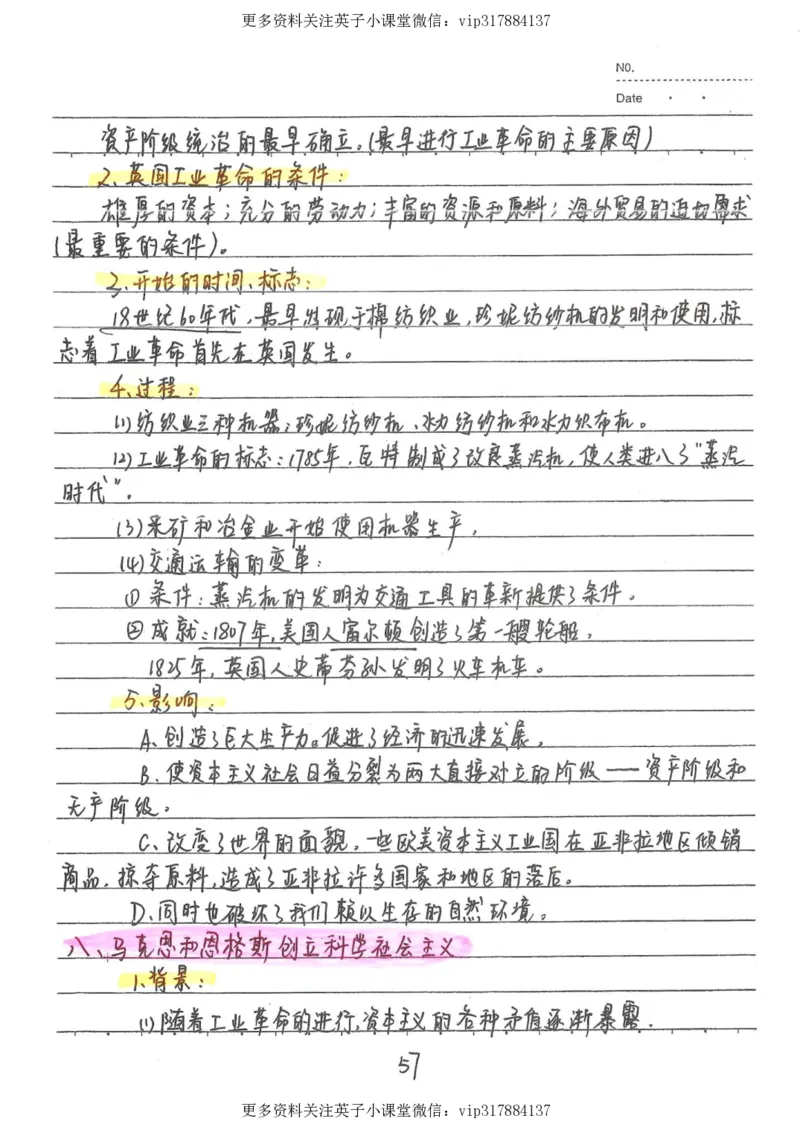 更多资料关注英子小课堂微信：vip317884137
NO.
Date
资产阶级统治的最早确立。(最早进行工业革命的主要原因)
2、英国工业革命的条件：
雄厚的资本；充分的劳动力；丰富的资源和原料；海外贸易的迫切需求
(最重要的条件)。
3、开始的时间、标志：
18世纪60年代，最早出现于棉纺织业，珍妮纺纱机的发明和使用，标
志着工业革命首先在英国发生。
4、过程：
(1)纺织业三种机器：珍妮纺纱机、水力纺纱机和水力织布机。
(2)工业革命的标志：1785年，瓦特制成了改良蒸汽机，使人类进入了“蒸汽
时代”。
(3)采矿和冶金业开始使用机器生产。
(4)交通运输的变革：
①条件：蒸汽机的发明为交通工具的革新提供了条件。
②成就：1807年，美国人富尔顿创造了第一艘轮船。
1825年，英国人史蒂芬孙发明了火车机车。
5、影响：
A、创造了巨大生产力。促进了经济的迅速发展。
B、使资本主义社会日益分裂为两大直接对立的阶级——资产阶级和
无产阶级。
C、改变了世界的面貌。一些欧美资本主义工业国在亚非拉地区倾销
商品，掠夺原料，造成了亚非拉许多国家和地区的落后。
D、同时也破坏了我们赖以生存的自然环境。
八、马克思和恩格斯创立科学社会主义
1、背景：
(1)随着工业革命的进行，资本主义的各种矛盾逐渐暴露．
57
更多资料关注英子小课堂微信：vip317884137